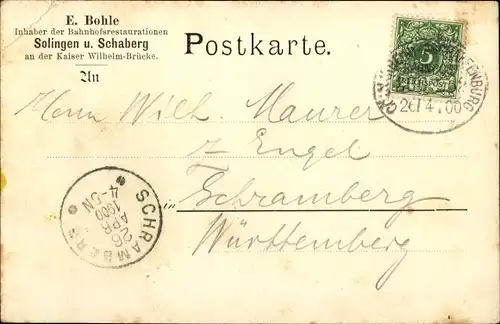 E. Bohle
Inhaber der Bahnhofsrestaurationen
Solingen u. Schaberg
an der Kaiser Wilhelm-Brücke.
Postkarte.
An
5
26 4 00
Herrn Wilh. Maurer
z. Engel
in Schramberg
Württemberg
SCHRAMBERG
26
APR
1900
4-5N